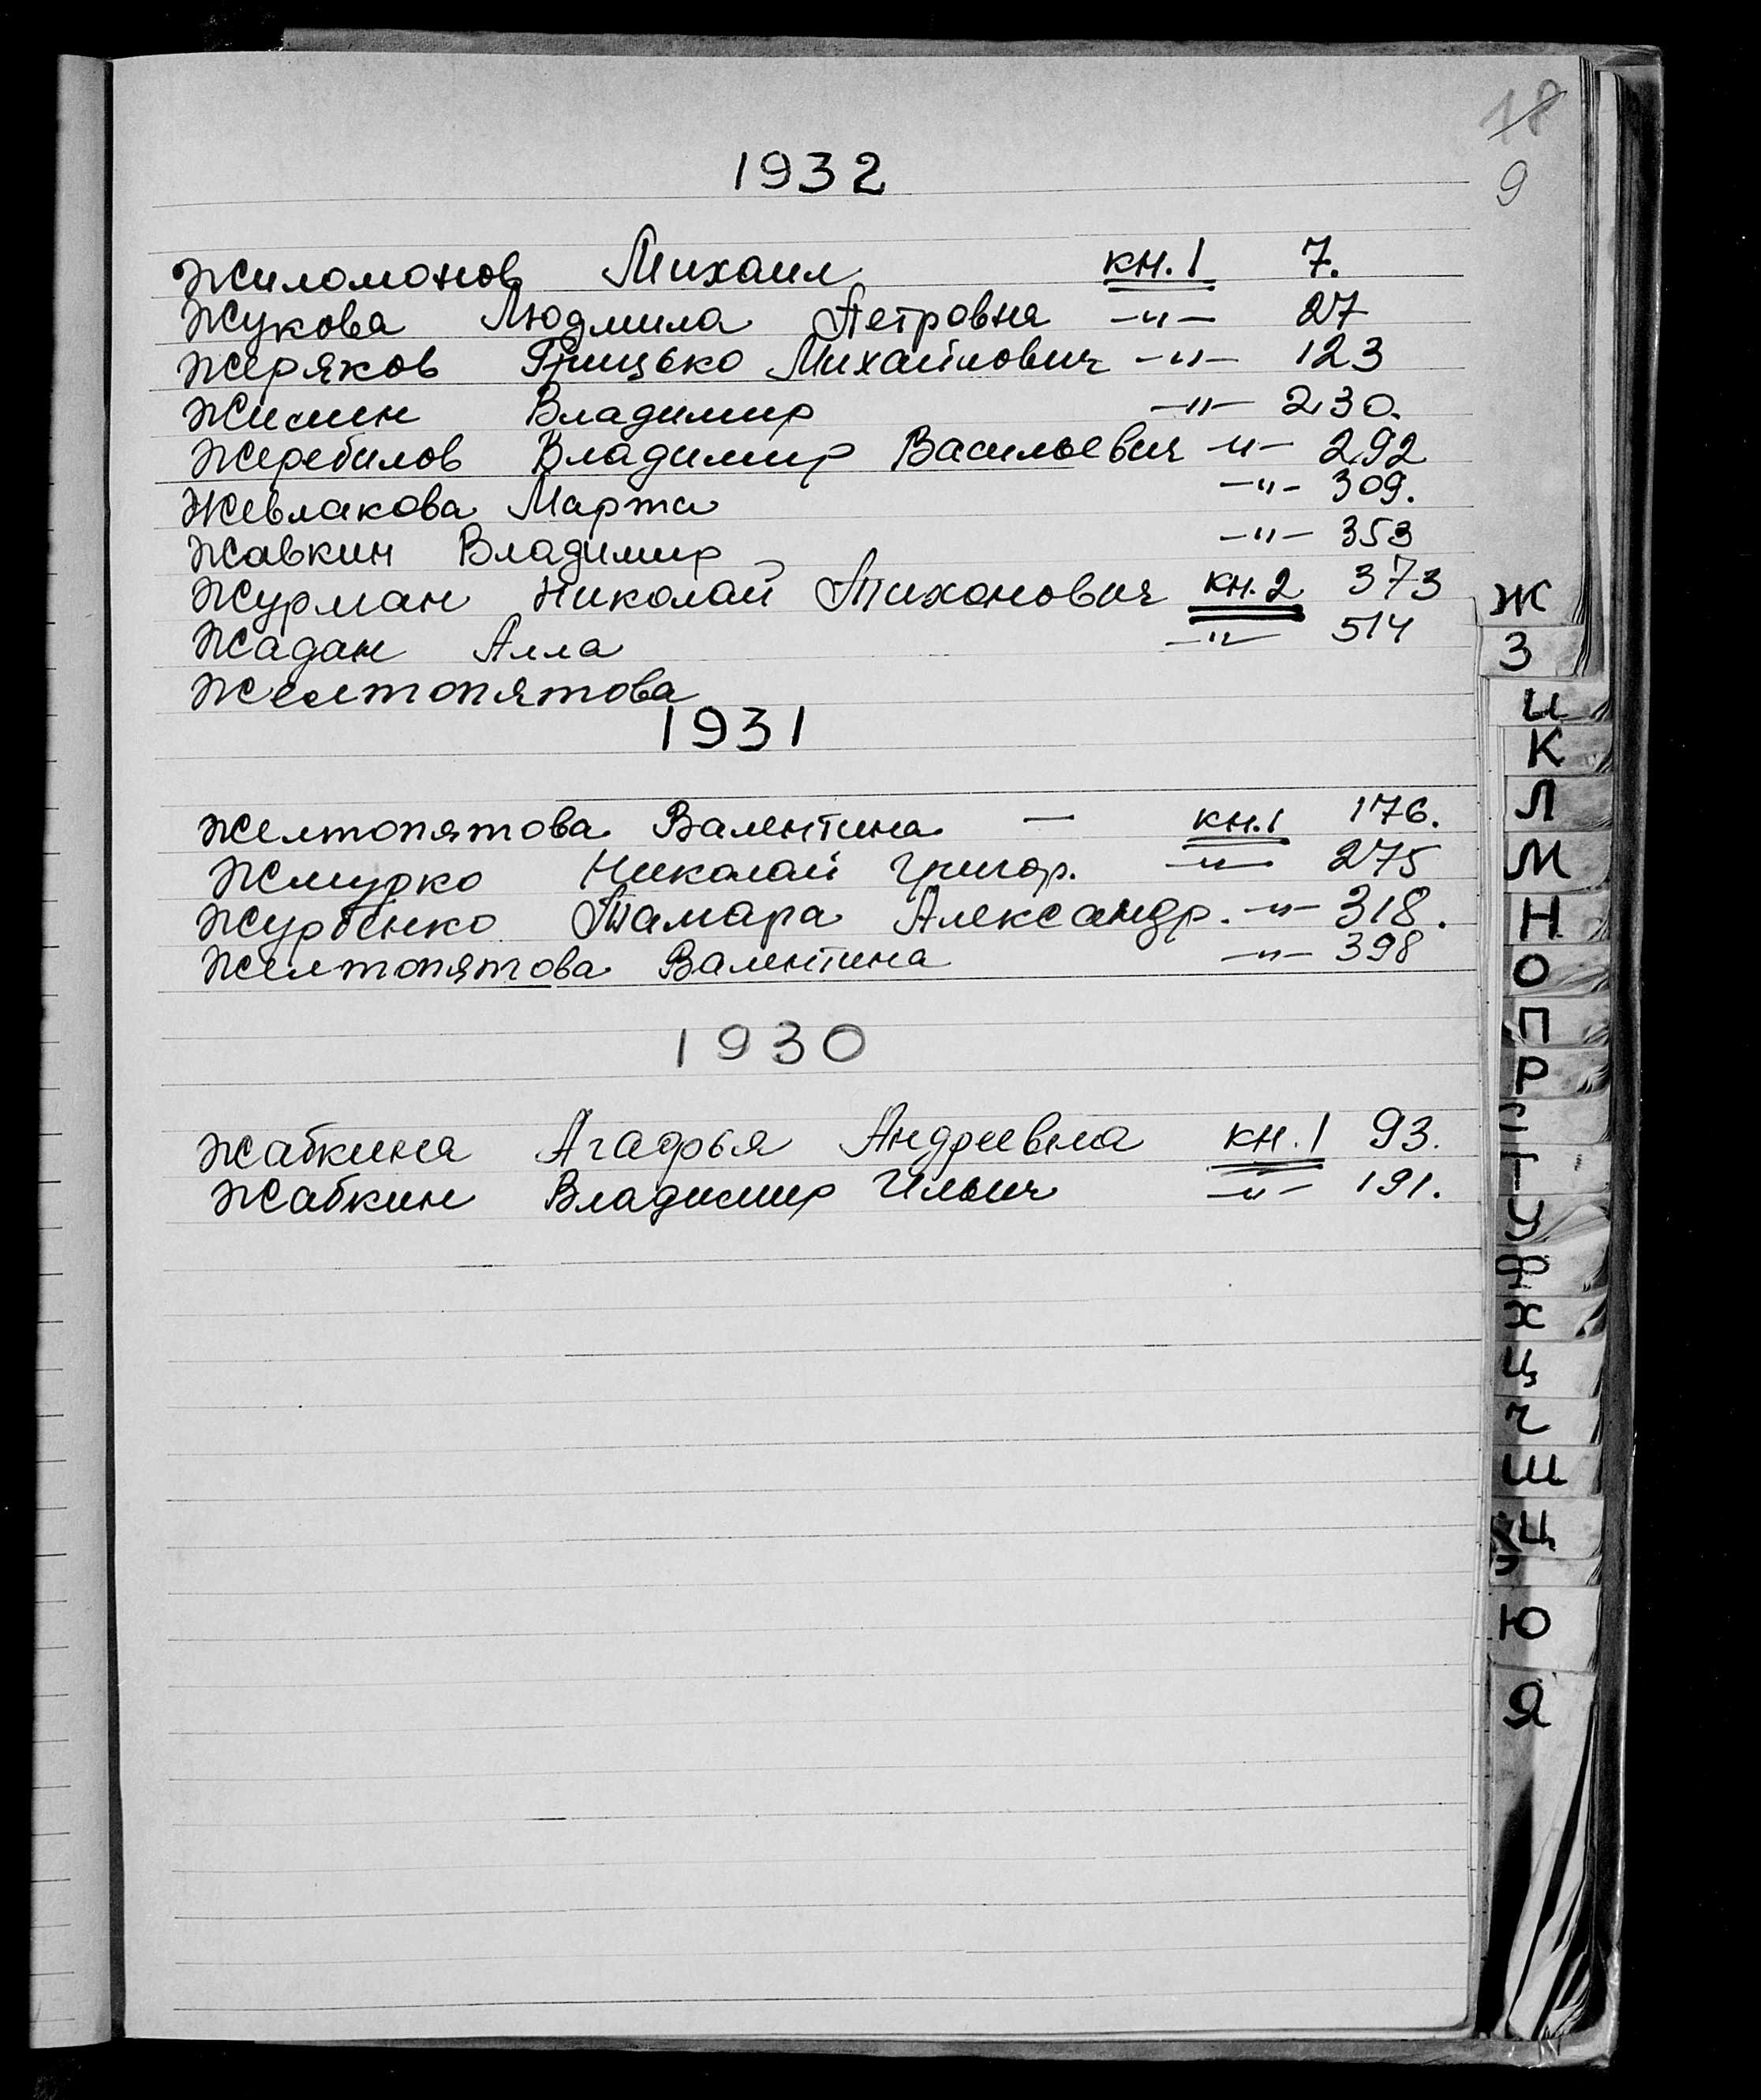 18
9
1932
Жиломонов Михаил кн. 1 7.
Жукова Людмила Петровна —"— 27
Жеряков Грицько Михайлович —"— 123
Жилин Владимир —"— 230.
Жеребилов Владимир Васильевич —"— 292
Жевлакова Марта —"— 309.
Жавкин Владимир —"— 353
Журман Николай Тихонович кн. 2 373
Жадан Алла —"— 514
Желтопятова
1931
Желтопятова Валентина — кн. 1 176.
Жмурко Николай Григор. —"— 275
Журбенко Тамара Александр. —"— 318.
Желтопятова Валентина —"— 398
1930
Жабкина Агафья Андреевна кн. 1 93.
Жабкин Владимир Ильич —"— 191.
Ж
З
И
К
Л
М
Н
О
П
Р
С
Т
У
Ф
Х
Ц
Ч
Ш
Щ
Э
Ю
Я